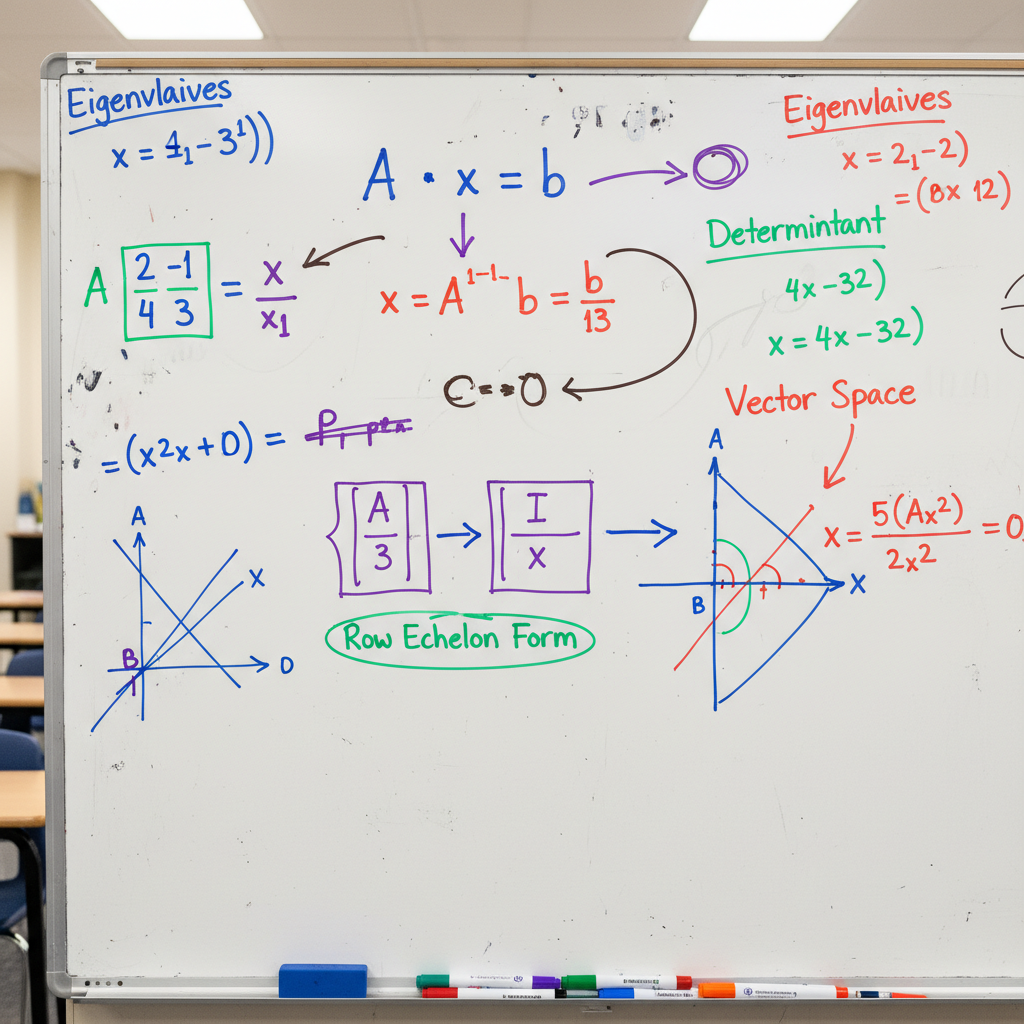 Eigenvlaives
x = 4₁ - 3¹))
A · x = b
Eigenvlaives
x = 2₁ - 2)
= (8x 12)
Determintant
4x - 32)
x = 4x - 32)
A
2 -1
4 3
= x
x₁
x = A¹⁻¹⁻ b = b
13
= (x2x + 0) =
Vector Space
A
3
I
x
Row Echelon Form
x = 5(Ax²) = 0
2x²
A
X
B
O
A
B
X